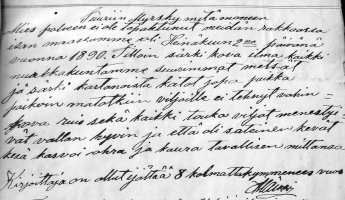 Suurin Myrsky mitä moneen
Mies polveen ei ole tapahtunut meidän rakkaassa
isän maassamme oli Heinäkuun 2na päivänä
vuonna 1890. Silloin särki kova ilma kaikki
nurkkakuntamme suurimmat metsät
ja särki kartanoista katot jopa paikka
paikoin matotkin viljoille ei tehnyt vahin=
kova ruis sekä kaikki touko viljat menestyi=
vät vallan hyvin ja että oli satainen kevät
kesä kasvoi ohra ja kaura tavallisen mittansa
Kirjoittaja on ollut ijältää 8 kolmatta kymmences vuos